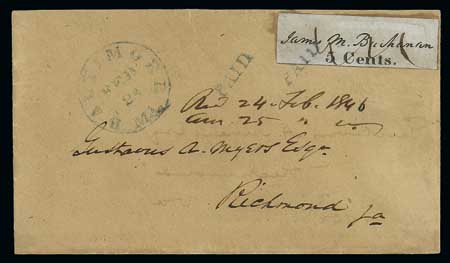 James M. Buchanan
5 Cents.
PAID
PAID
BALTIMORE Md.
FEB
24
Recd 24 Feb. 1846
Ansr 25 "
Gustavus A. Myers Esqr
Richmond
Va